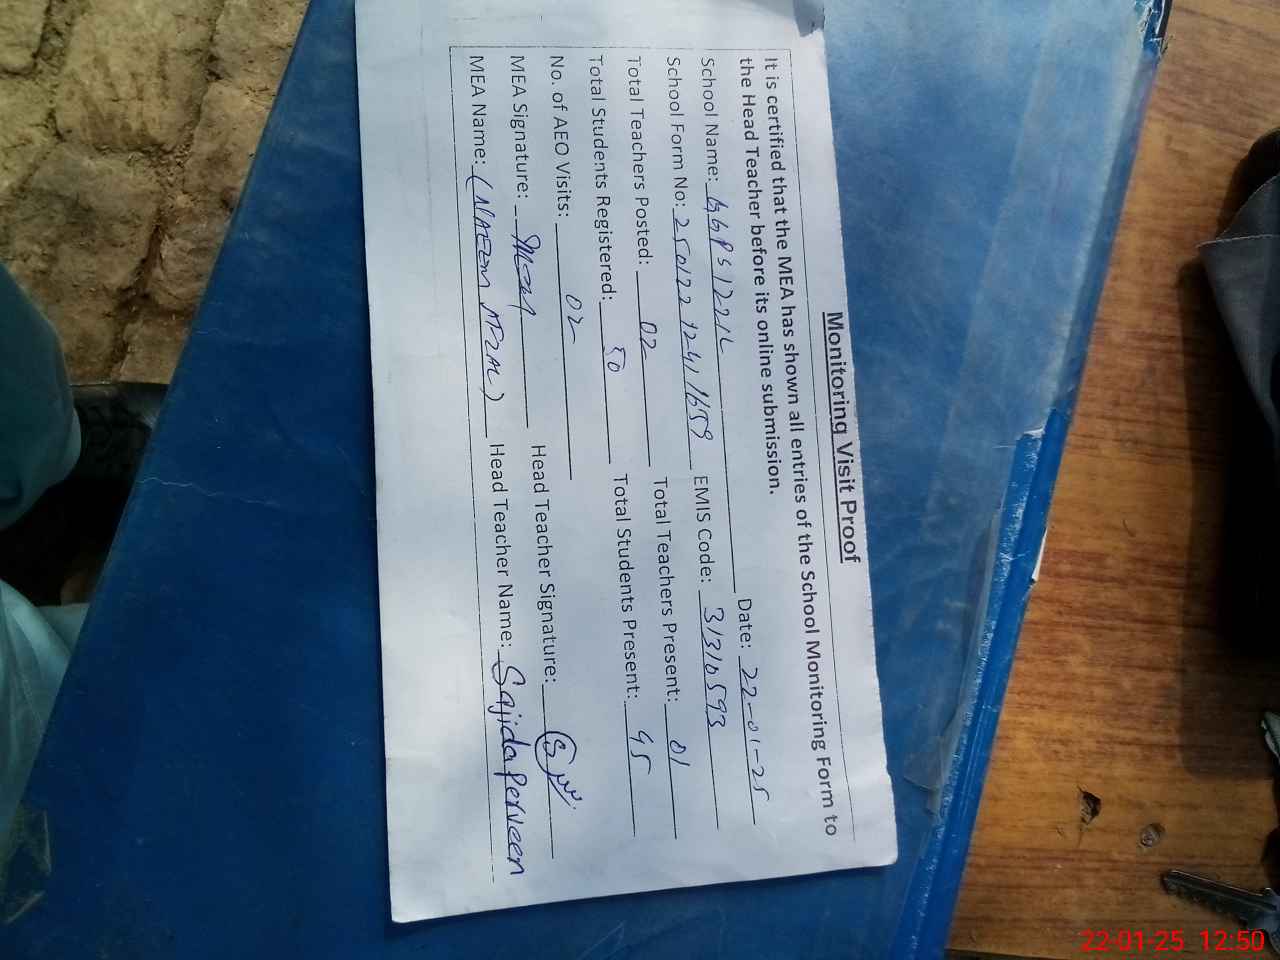 Monitoring Visit Proof
It is certified that the MEA has shown all entries of the School Monitoring Form to
the Head Teacher before its online submission.
School Name: GGPS 122/L Date: 22-01-25
School Form No: 250122 1241 1659 EMIS Code: 31310593
Total Teachers Posted: 02 Total Teachers Present: 01
Total Students Registered: 50 Total Students Present: 45
No. of AEO Visits: 02
MEA Signature: Head Teacher Signature:
MEA Name: (NAEEM AFZAL) Head Teacher Name: Sajida Perveen
22-01-25 12:50